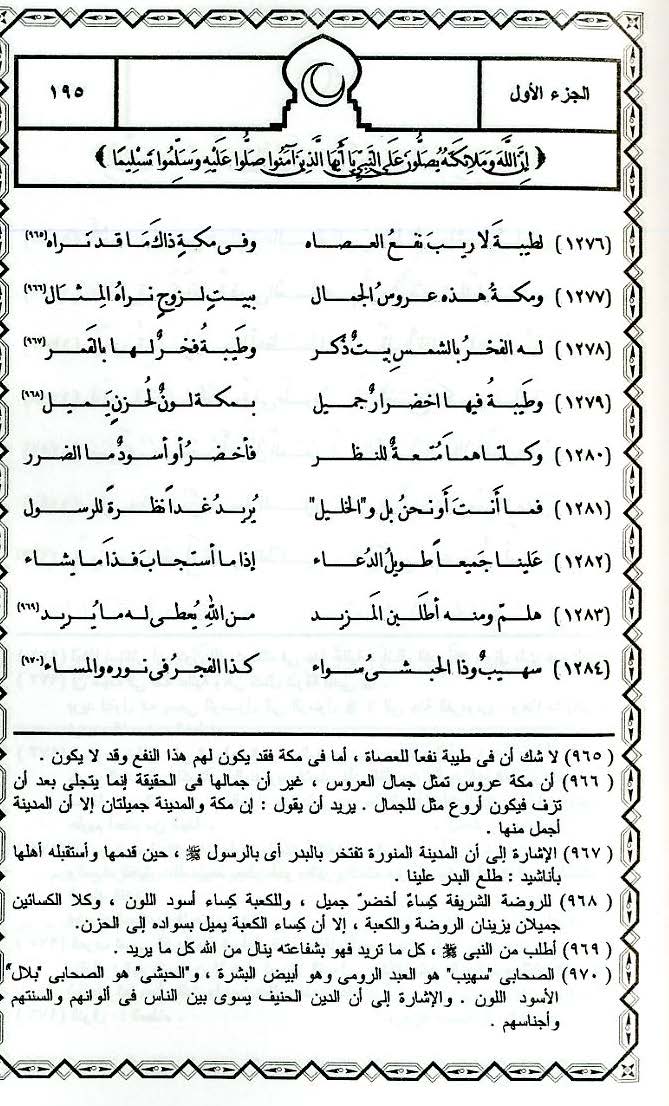 الجزء الأول
١٩٥
﴿ إِنَّ اللَّهَ وَمَلَائِكَتَهُ يُصَلُّونَ عَلَى النَّبِيِّ يَا أَيُّهَا الَّذِينَ آمَنُوا صَلُّوا عَلَيْهِ وَسَلِّمُوا تَسْلِيمًا ﴾
(١٢٧٦) لطيبة لا ريبَ نفعُ العصاه وفى مكةٍ ذاكَ مَا قد تراه (٩٦٥)
(١٢٧٧) ومكةُ هذه عروسُ الجمال ببيتٍ لزوجٍ نراهُ المِثال (٩٦٦)
(١٢٧٨) له الفخرُ بالشمسِ بيتٌ ذُكر وطَيبةُ فخرٌ لها بالقَمر (٩٦٧)
(١٢٧٩) وطَيبةُ فيها اخضرارٌ جميل بمكة لونٌ لحُزنٍ يميل (٩٦٨)
(١٢٨٠) وكلتاهما مُتعةٌ للنظر فأخضرُ أو أسودٌ ما الضرر
(١٢٨١) فما أَنتَ أو نحنُ بل و"الخليل" يُريدُ غداً نظرةً للرسول
(١٢٨٢) عَلينا جَميعاً طويلُ الدُعاء إذا ما أستجابَ فذا ما يشاء
(١٢٨٣) هلمّ ومنه أطلُبن المَزيد من اللهِ يُعطى له ما يُريد (٩٦٩)
(١٢٨٤) سهيبٌ وذا الحَبشىُ سواء كذا الفجرُ فى نوره والمساء (٩٧٠)
(٩٦٥) لا شك أن فى طيبة نفعاً للعصاة ، أما فى مكة فقد يكون لهم هذا النفع وقد لا يكون .
(٩٦٦) أن مكة عروس تمثل جمال العروس ، غير أن جمالها فى الحقيقة إنما يتجلى بعد أن
تزف فيكون أروع مثل للجمال . يريد أن يقول : إن مكة والمدينة جميلتان إلا أن المدينة
أجمل منها .
(٩٦٧) الإشارة إلى أن المدينة المنورة تفتخر بالبدر أى بالرسول ﷺ ، حين قدمها وأستقبله أهلها
بأناشيد : طلع البدر علينا .
(٩٦٨) للروضة الشريفة كِساءٌ أخضرّ جميل ، وللكعبة كِساء أسود اللون ، وكلا الكسائين
جميلان يزينان الروضة والكعبة ، إلا أن كِساء الكعبة يميل بسواده إلى الحزن.
(٩٦٩) أطلب من النبى ﷺ ، كل ما تريد فهو بشفاعته ينال من الله كل ما يريد .
(٩٧٠) الصحابى "سهيب" هو العبد الرومى وهو أبيض البشرة ، و"الحبشى" هو الصحابى "بلال"
الأسود اللون . والإشارة إلى أن الدين الحنيف يسوى بين الناس فى ألوانهم والسنتهم
وأجناسهم .